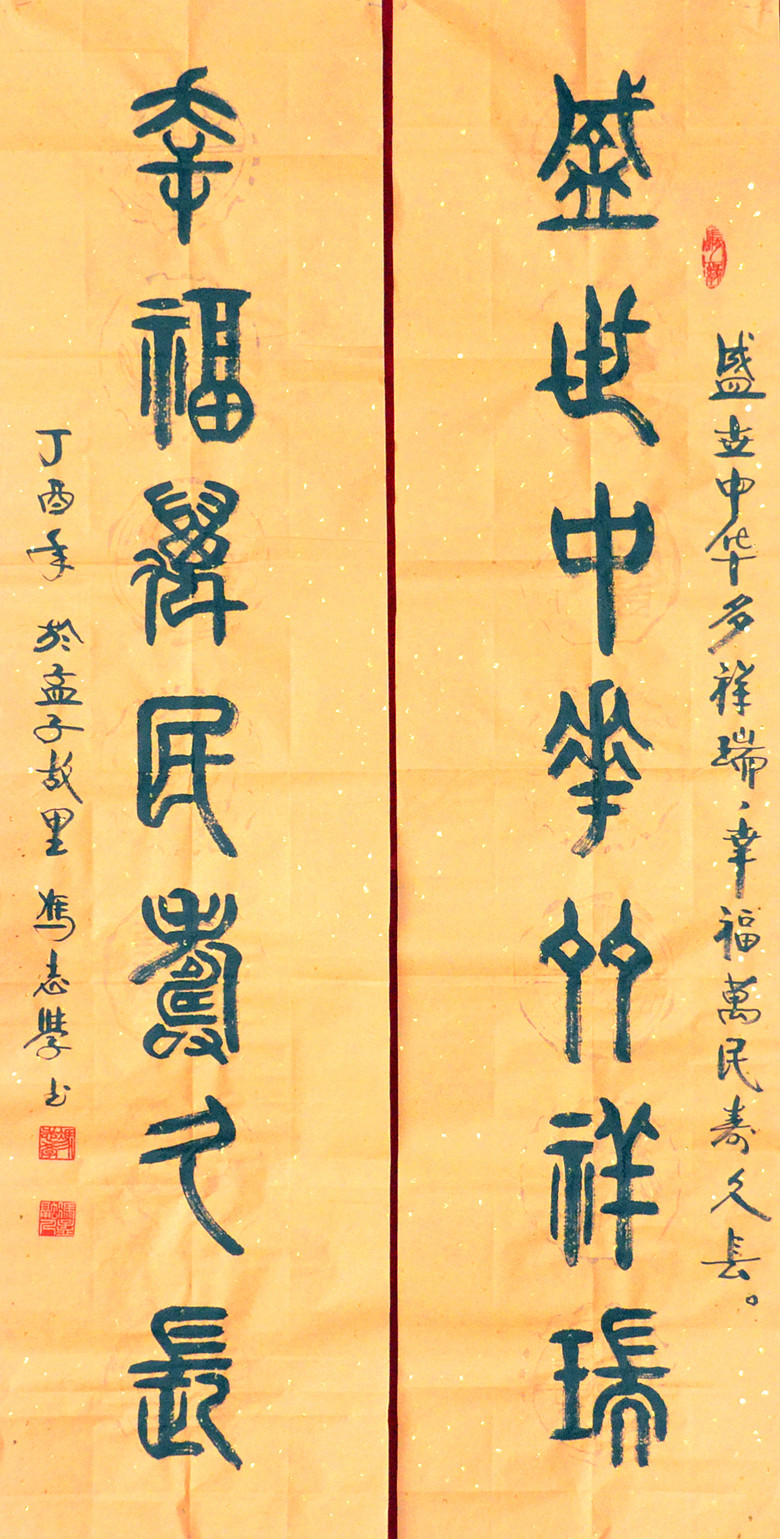 盛世中华多祥瑞、幸福萬民寿久長。
盛世中華多祥瑞
幸福萬民壽久長
丁酉年 於孟子故里 馮志學书